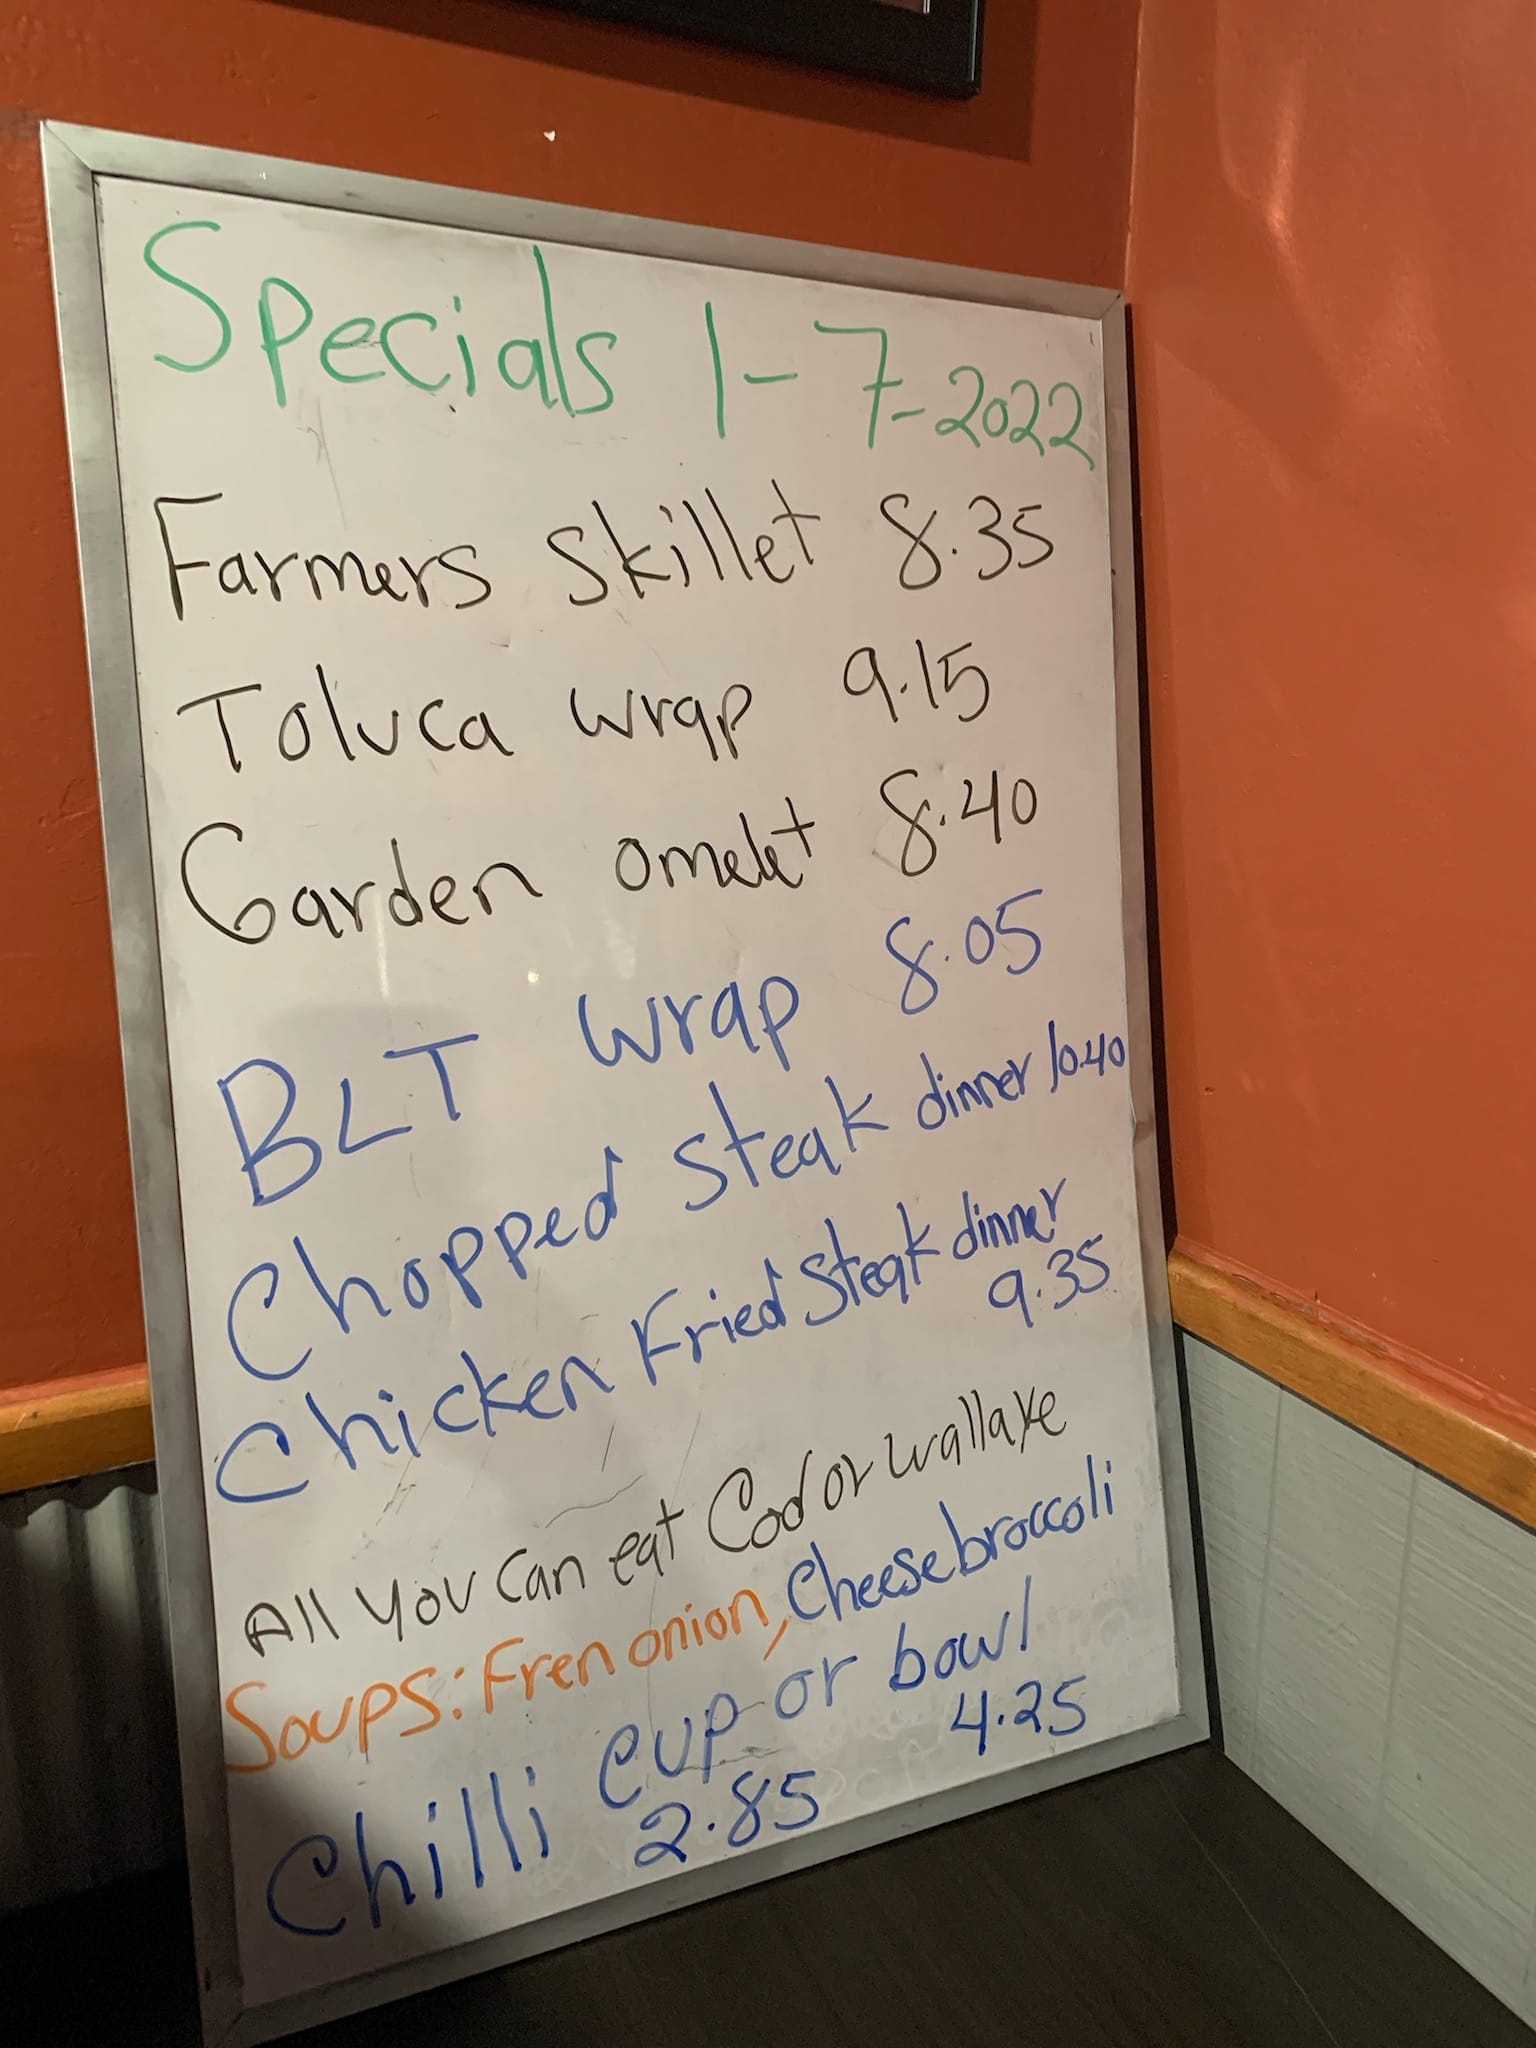 Specials 1-7-2022
Farmers Skillet 8.35
Toluca wrap 9.15
Garden omelet 8.40
BLT wrap 8.05
Chopped steak dinner 10.40
Chicken Fried Steak dinner
9.35
All you can eat Cod or wallaye
Soups: Fren onion, Cheese broccoli
Chilli cup or bowl
2.85 4.25